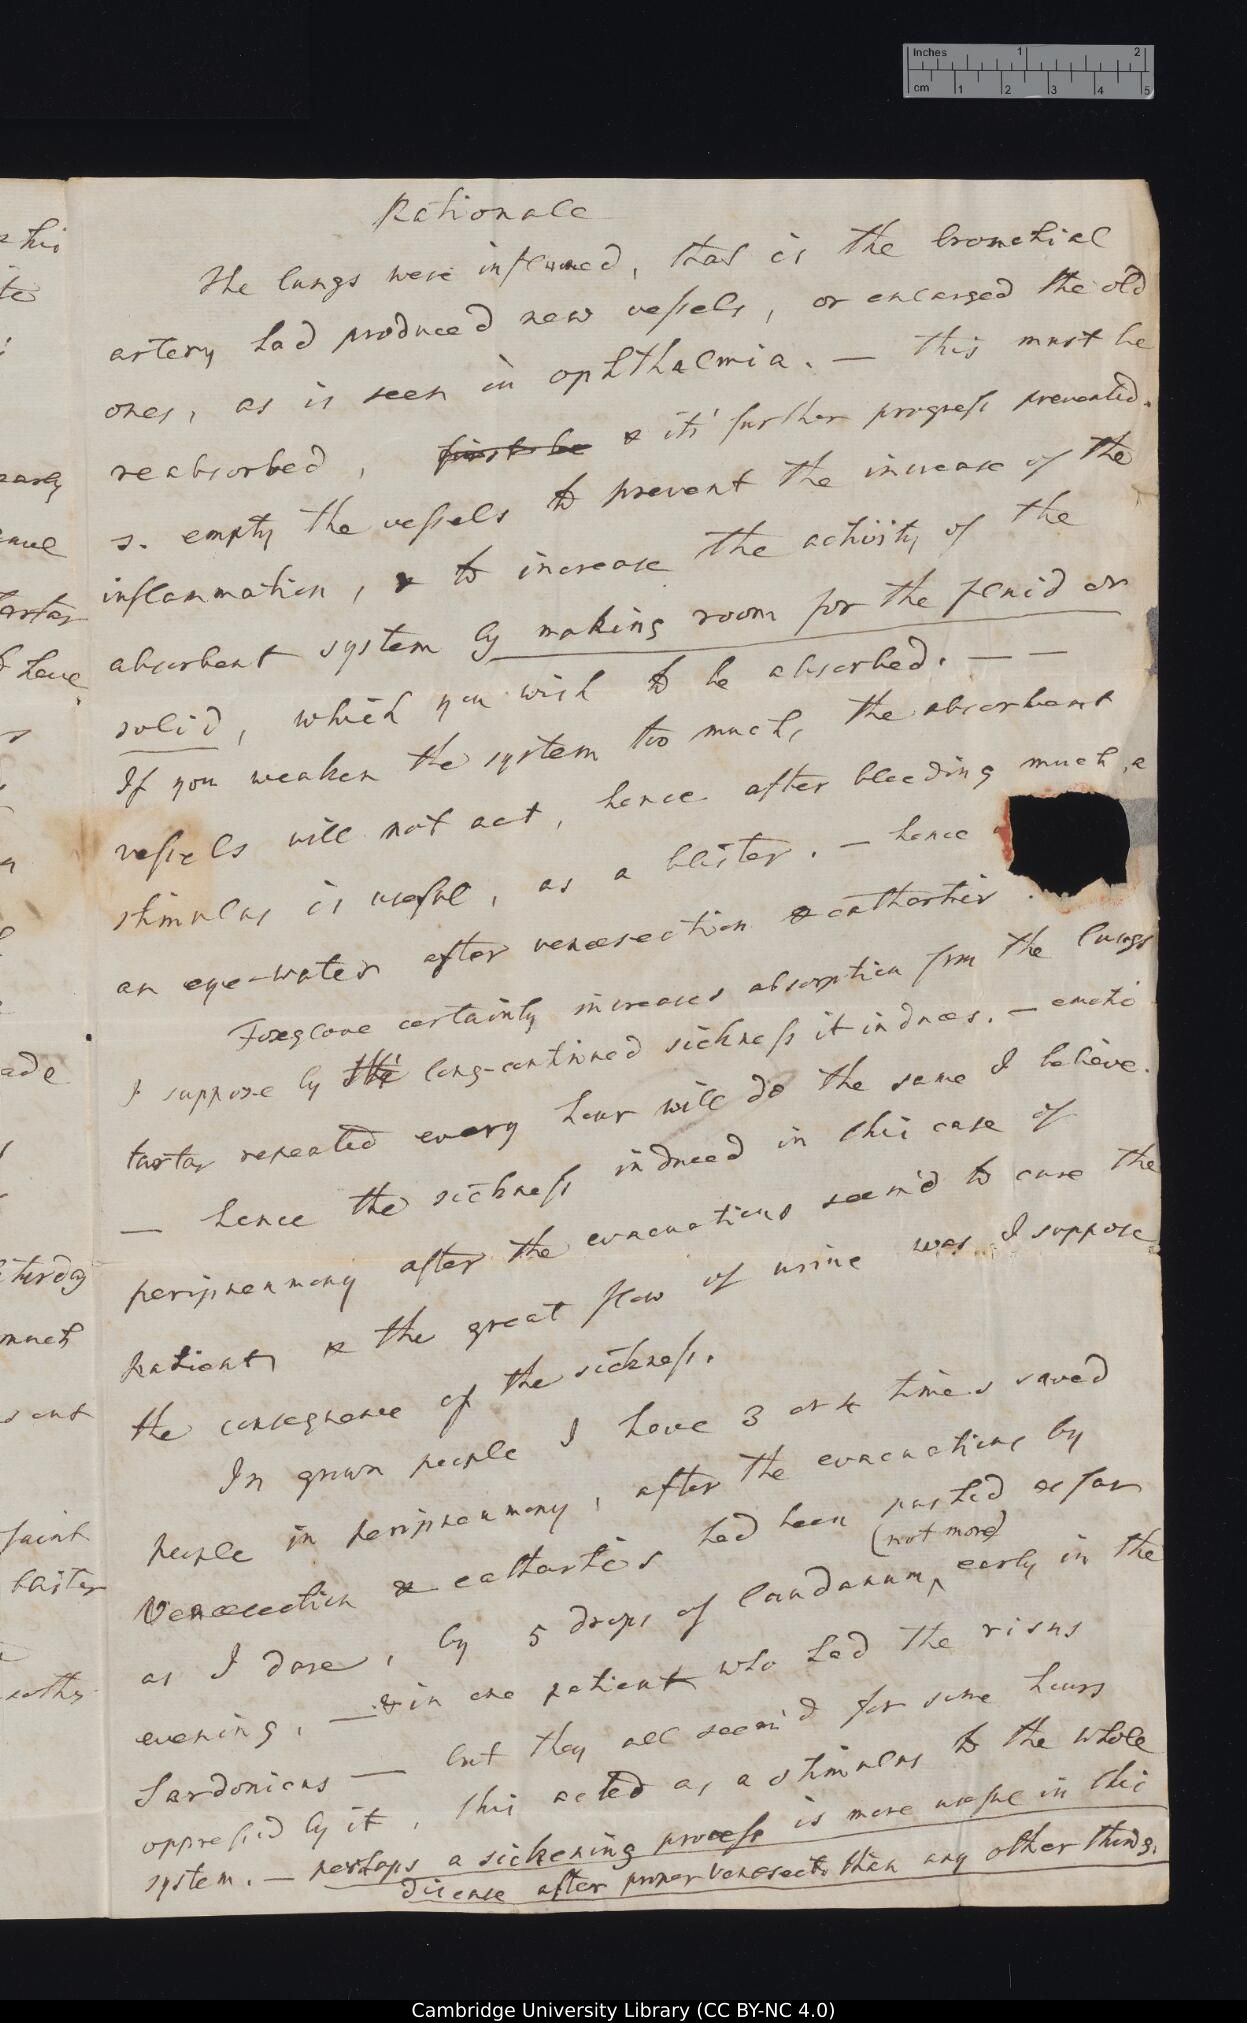 Rationale
The lungs were inflamed, that is the bronchial
artery had produced new vessels, or enlarged the old
ones, as is seen in ophthalmia. — this must be
reabsorbed, first be & it's further progress prevented.
s. empty the vessels to prevent the increase of the
inflammation, & to increase the activity of the
absorbent system by making room for the fluid or
solid, which you wish to be absorbed. — —
If you weaken the system too much, the absorbent
vessels will not act, hence after bleeding much, a
stimulus is useful, as a blister. — hence
an eye-water after venesection & cathartics.
Foxglove certainly increases absorption from the lungs
I suppose by the long-continued sickness it induces. — emetic
tartar repeated every hour will do the same I believe.
— hence the sickness induced in this case of
peripneumony after the evacuations seem'd to cure the
patient, & the great flow of urine was I suppose
the consequence of the sickness.
In grown people I have 3 or 4 times saved
people in peripneumony, after the evacuations by
Venesection & cathartics had been pushed as far
as I dare, by 5 drops of laudanum ^ (not more) early in the
evening, — & in one patient who had the risus
Sardonicus — but they all seem'd for some hours
oppressed by it, this acted as a stimulus to the whole
system. — perhaps a sickening process is more useful in this
disease after proper venesect. than any other thing.
his
te
early
Tartar
have
ade
much
sent
faint
blister
Inches 1 2
cm 1 2 3 4 5
Cambridge University Library (CC BY-NC 4.0)